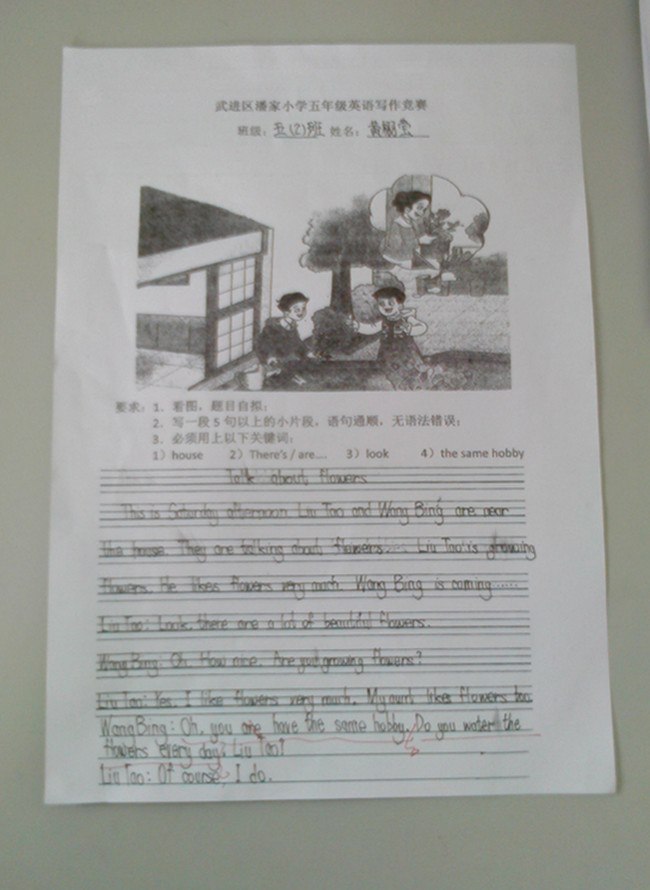 武进区潘家小学五年级英语写作竞赛
班级：五(2)班 姓名：黄
要求：1、看图，题目自拟；
2、写一段5句以上的小片段，语句通顺，无语法错误；
3、必须用上以下关键词：
1）house 2）There's / are.... 3）look 4）the same hobby
Talk about flowers
This is Saturday afternoon. Liu Tao and Wang Bing are near
the house. They are talking about flowers. Liu Tao is growing
flowers. He likes flowers very much. Wang Bing is coming......
Liu Tao: Look, there are a lot of beautiful flowers.
Wang Bing: Oh. How nice. Are you growing flowers?
Liu Tao: Yes, I like flowers very much. My aunt likes flowers too.
Wang Bing: Oh, you are have the same hobby. Do you water the
flowers every day, Liu Tao?
Liu Tao: Of course, I do.